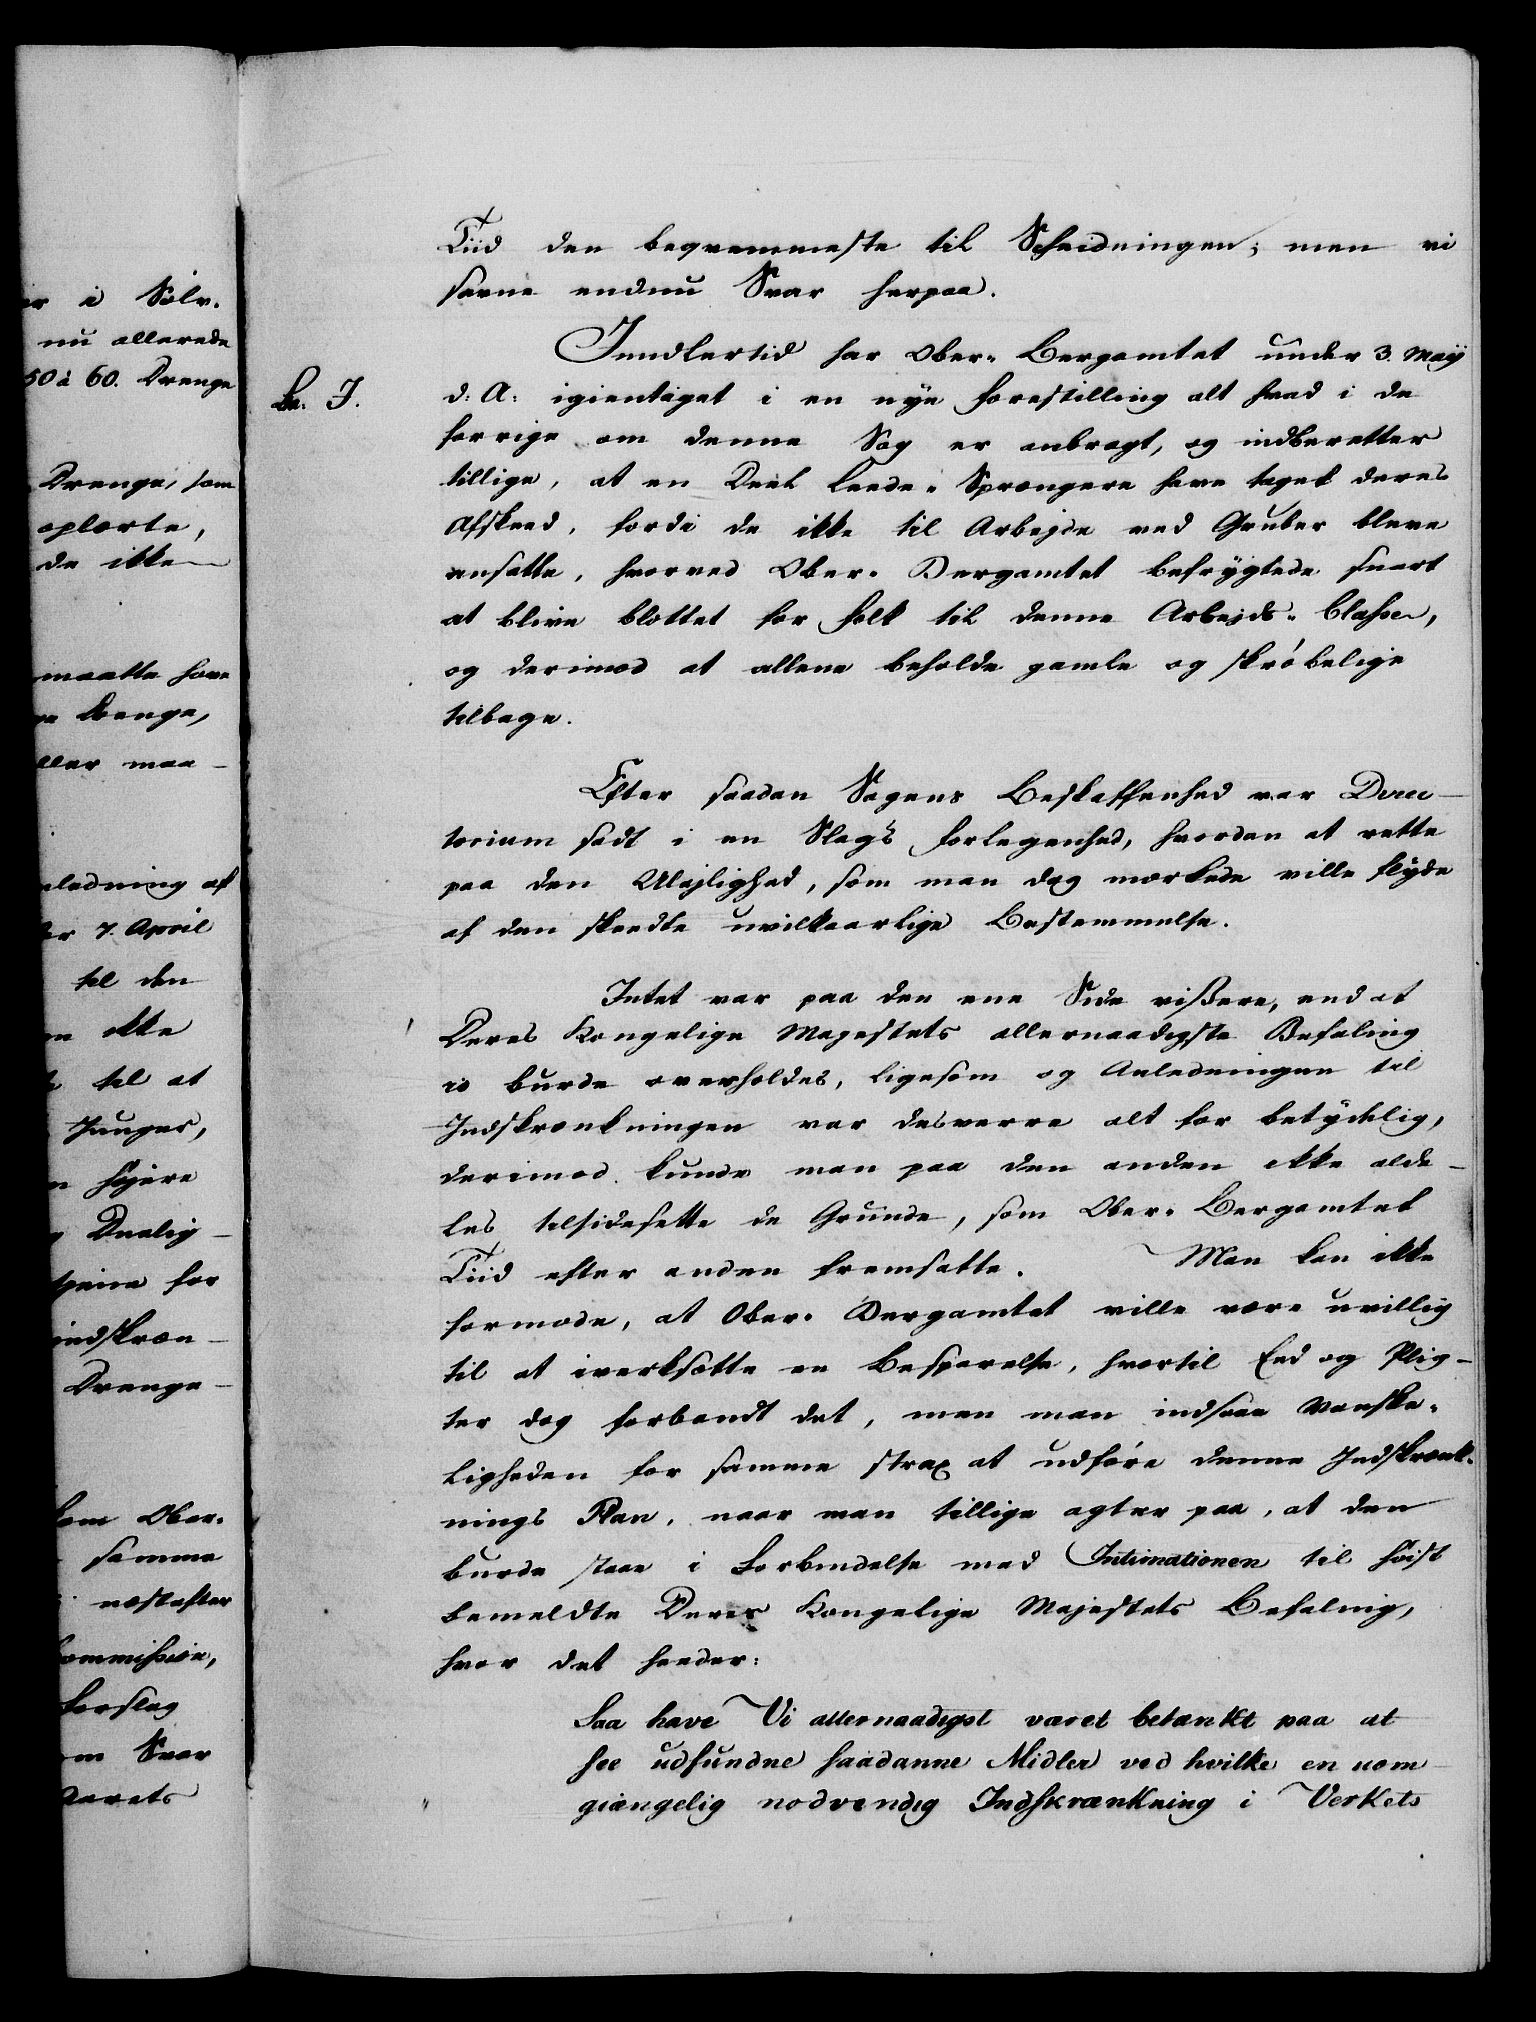 er i Sølv.
nu allerede
50 à 60. Drenge
Drenge, som
oplærte,
de ikke
maatte have
Drenge,
eller maa-
nledning af
der 7. April
til den
ikke
til at
Junger,
høyere
Duelig-
for
indskræn-
Drenge-
som Ober-
samme
næstefter
Commission,
Forslag
om Svar
Aarets
Tiid den beqvemmeste til Scheidningen; men vi
savne endnu Svar herpaa.
Imidlertid har Ober- Bergamtet under 3. Maÿ
La. J.
d: A: igientaget i en nye Forestilling alt hvad i de
forrige om denne Sag er anbragt, og indberetter
tillige, at en Deel Leede- Sprængere have taget deres
Afskeed, fordi de ikke til Arbejde ved Gruber bleve
ansatte, hvorved Ober- Bergamtet befrÿgtede snart
at blive blottet for Folk til denne Arbejds- Classe,
og derimod at allene beholde gamle og skrøbelige
tilbage.
Efter saadan Sagens Beskaffenhed var Direc-
torium sadt i en Slags Forlegenhed, hvordan at rette
paa den Ulejlighed, som man dog mærkede ville flÿde
af den skeedte uvilkaarlige Bestemmelse.
Intet var paa den ene Side vissere, end at
Deres Kongelige Majestets allernaadigste Befaling
jo burde overholdes, ligesom og Anledningen til
Indskrænkningen var desværre alt for betÿdelig,
derimod kunde man paa den anden ikke alde-
les tilsidesette de Grunde, som Ober- Bergamtet
Tiid efter anden fremsatte. Man kan ikke
formode, at Ober- Bergamtet ville være uvillig
til at iverksætte en Besparelse, hvortil Eed og Plig-
ter dog forbandt det, men man indsaae Vanske-
ligheden for samme strax at udføre denne Indskrænk-
nings Plan, naar man tillige agter paa, at den
burde staae i Forbindelse med Intimationen til høist
bemeldte Deres Kongelige Majestets Befaling,
hvor det heeder:
Saa have Vi allernaadigst været betænkt paa at
see udfundne saadanne Midler ved hvilke en uom-
giængelig nødvendig Indskrænkning i Verkets